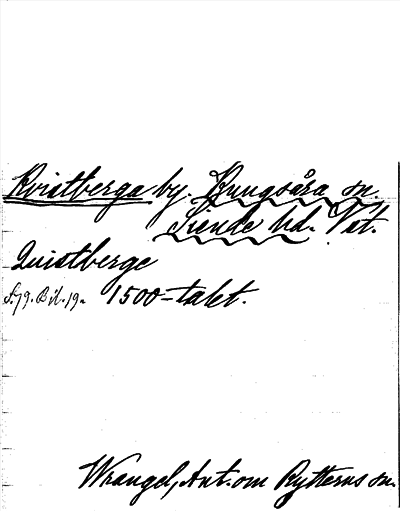 Kvistberga by. Kungsåra sn.
Siende hd. Vst.
Quistberge
s. 79. Bil. 19. 1500-talet.
Wrangel, Ant. om Rytterns sn.